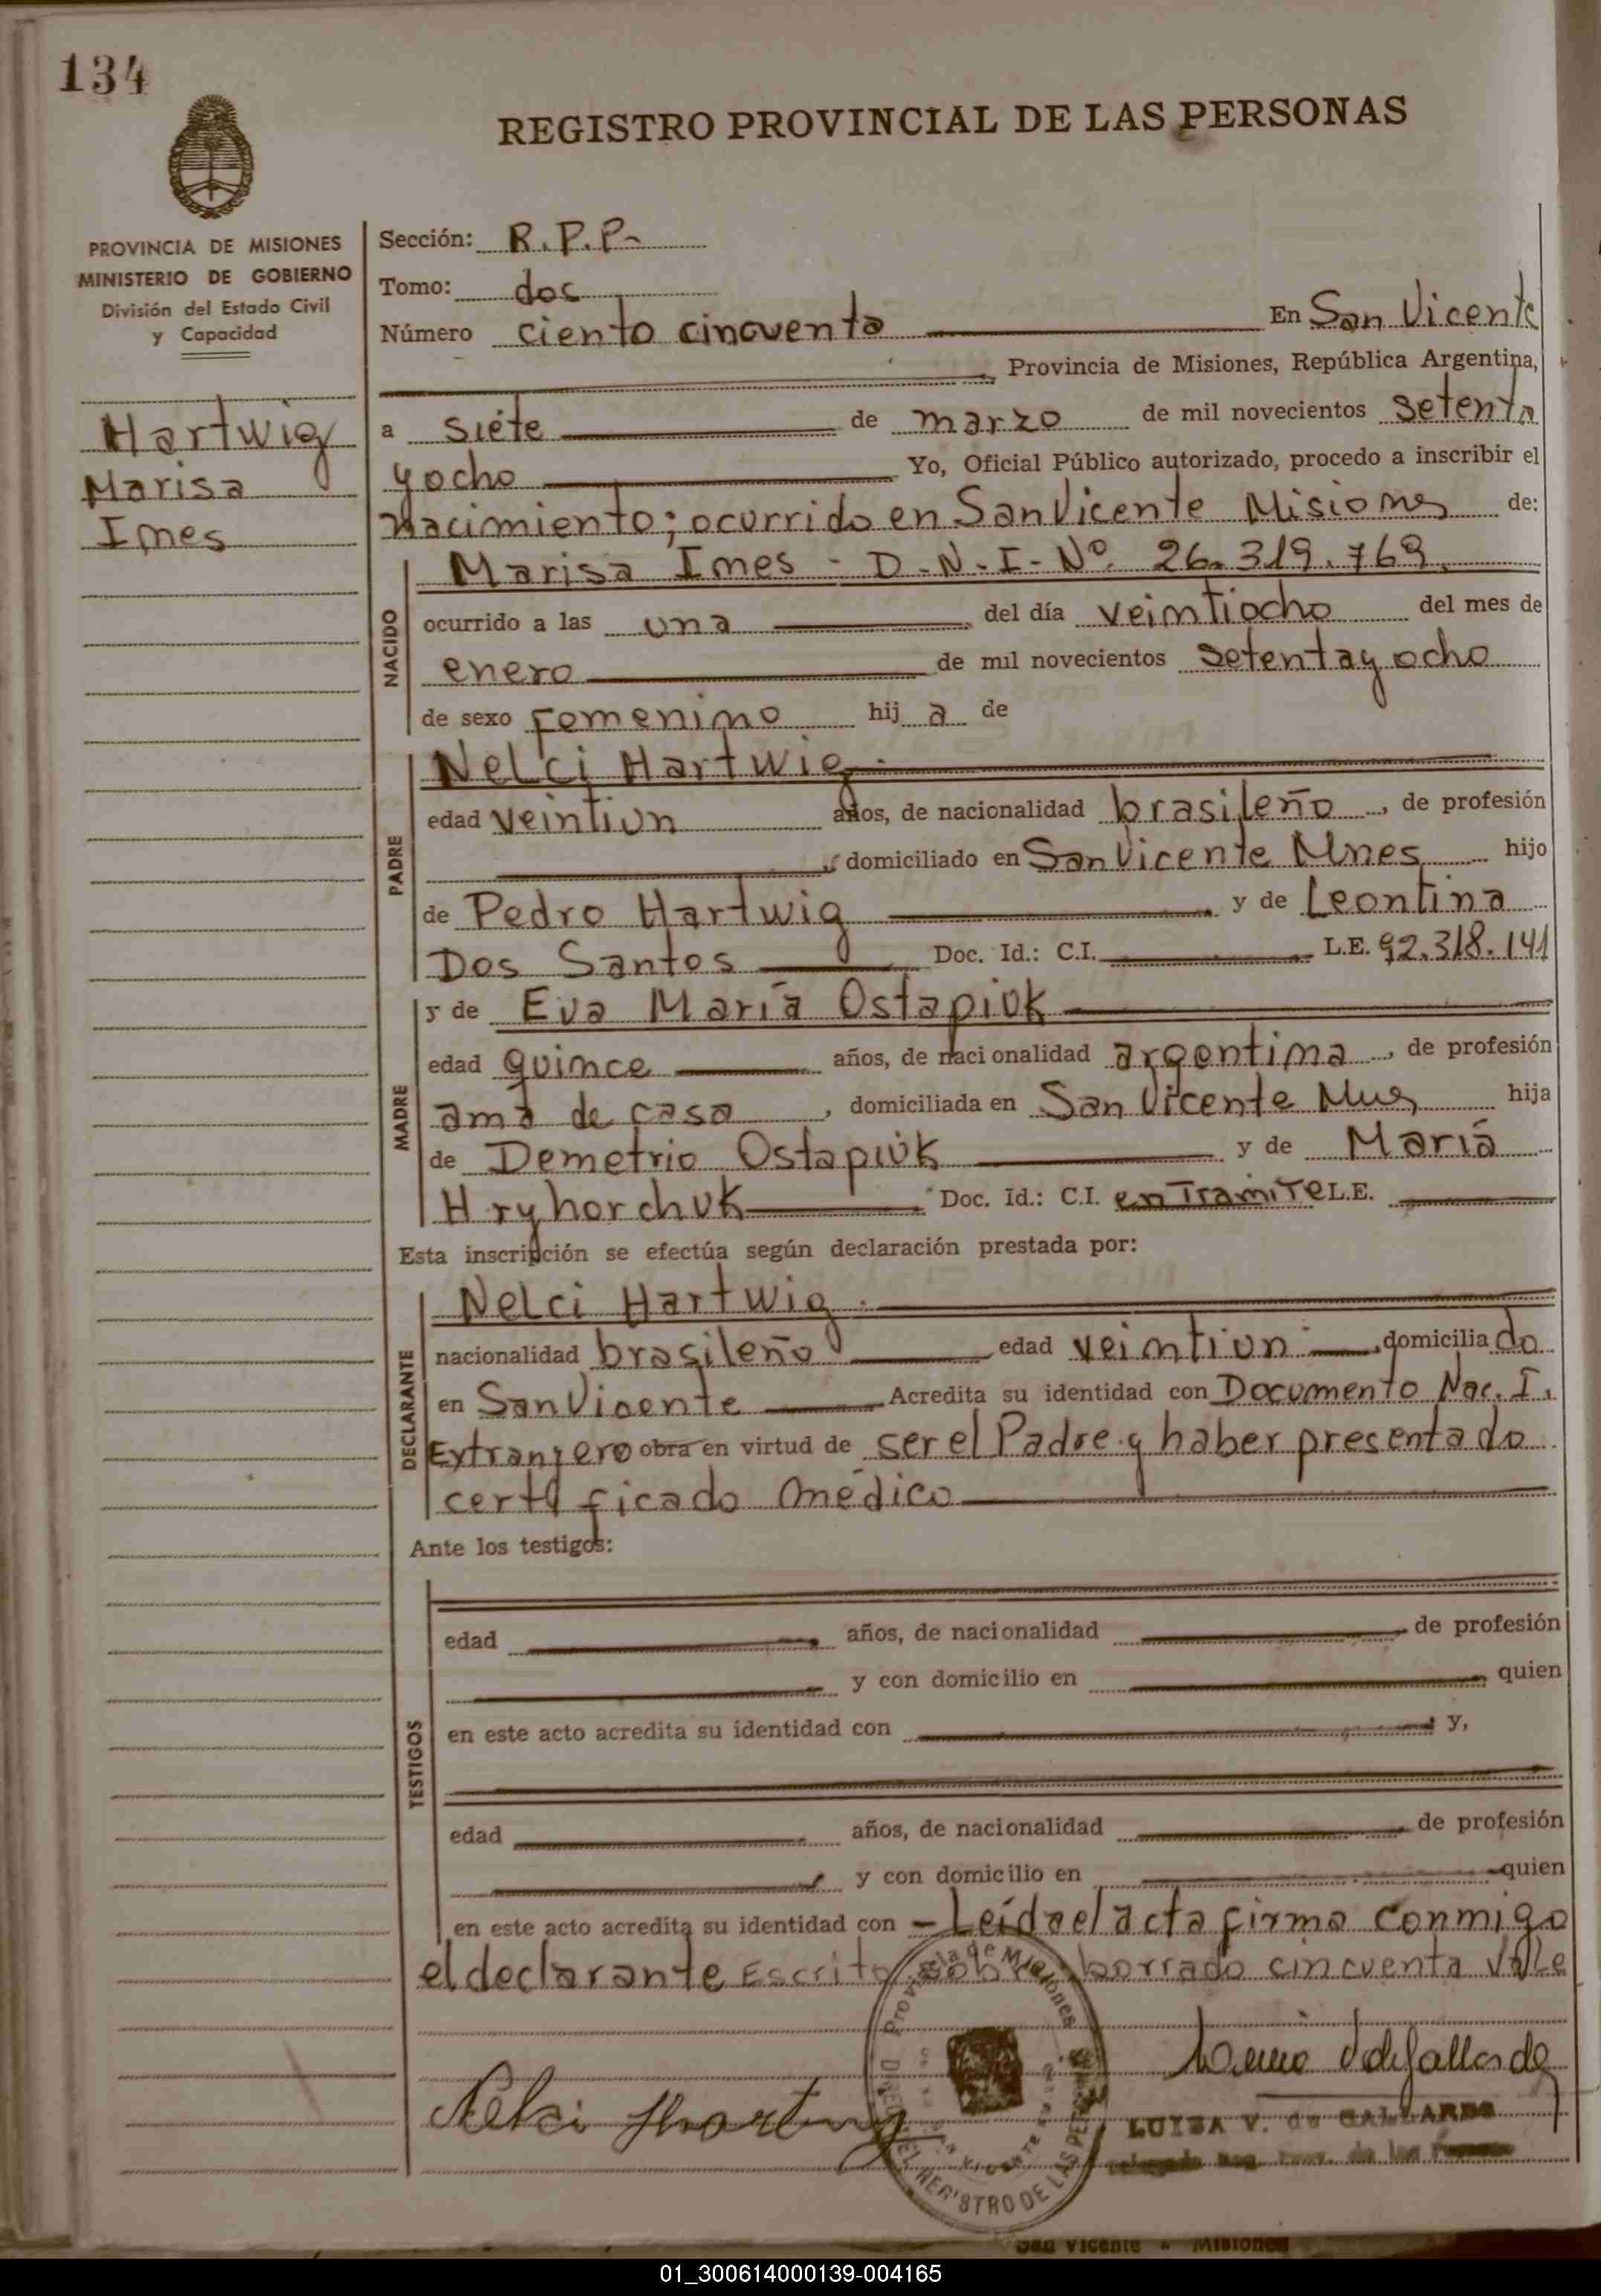 134
REGISTRO PROVINCIAL DE LAS PERSONAS
PROVINCIA DE MISIONES
MINISTERIO DE GOBIERNO
División del Estado Civil
y Capacidad
Hartwig
Marisa
Ines
Sección: R.P.P.-
Tomo: dos
Número ciento cincuenta En San Vicente
Provincia de Misiones, República Argentina,
a siete de marzo de mil novecientos setenta
y ocho Yo, Oficial Público autorizado, procedo a inscribir el
nacimiento; ocurrido en San Vicente Misiones de:
NACIDO
Marisa Ines - D-N-I-Nº. 26.319.769.
ocurrido a las una del día veintiocho del mes de
enero de mil novecientos setenta y ocho
de sexo femenino hij a de
PADRE
Nelci Hartwig.
edad veintiun años, de nacionalidad brasileño, de profesión
, domiciliado en San Vicente Mnes hijo
de Pedro Hartwig y de Leontina
Dos Santos Doc. Id.: C.I. L.E. 92.318.141
MADRE
y de Eva María Ostapiuk
edad quince años, de nacionalidad argentina, de profesión
ama de casa, domiciliada en San Vicente Mnes hija
de Demetrio Ostapiuk y de María
Hryhorchuk Doc. Id.: C.I. en Tramite L.E.
Esta inscripción se efectúa según declaración prestada por:
DECLARANTE
Nelci Hartwig.
nacionalidad brasileño edad veintiun, domiciliado
en San Vicente Acredita su identidad con Documento Nac. I.
Extranjero obra en virtud de ser el Padre y haber presentado
certificado médico
Ante los testigos:
TESTIGOS
edad años, de nacionalidad de profesión
y con domicilio en quien
en este acto acredita su identidad con y,
edad años, de nacionalidad de profesión
y con domicilio en quien
en este acto acredita su identidad con - Leída el acta firma conmigo
el declarante Escrito sobre borrado cincuenta Vale
Provincia de Misiones
REGISTRO DE LAS PERSONAS
Nelci Hartwig
LUISA V. de GALLARDO
San Vicente - Misiones
01_300614000139-004165